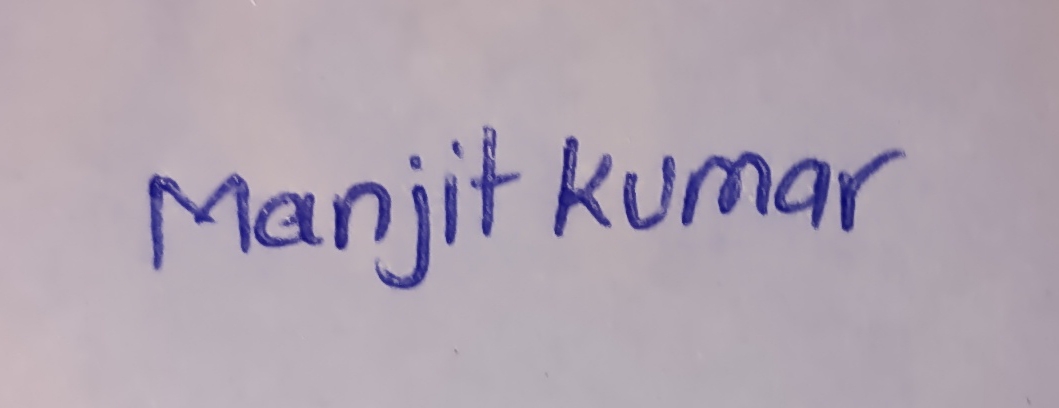 Manjit Kumar